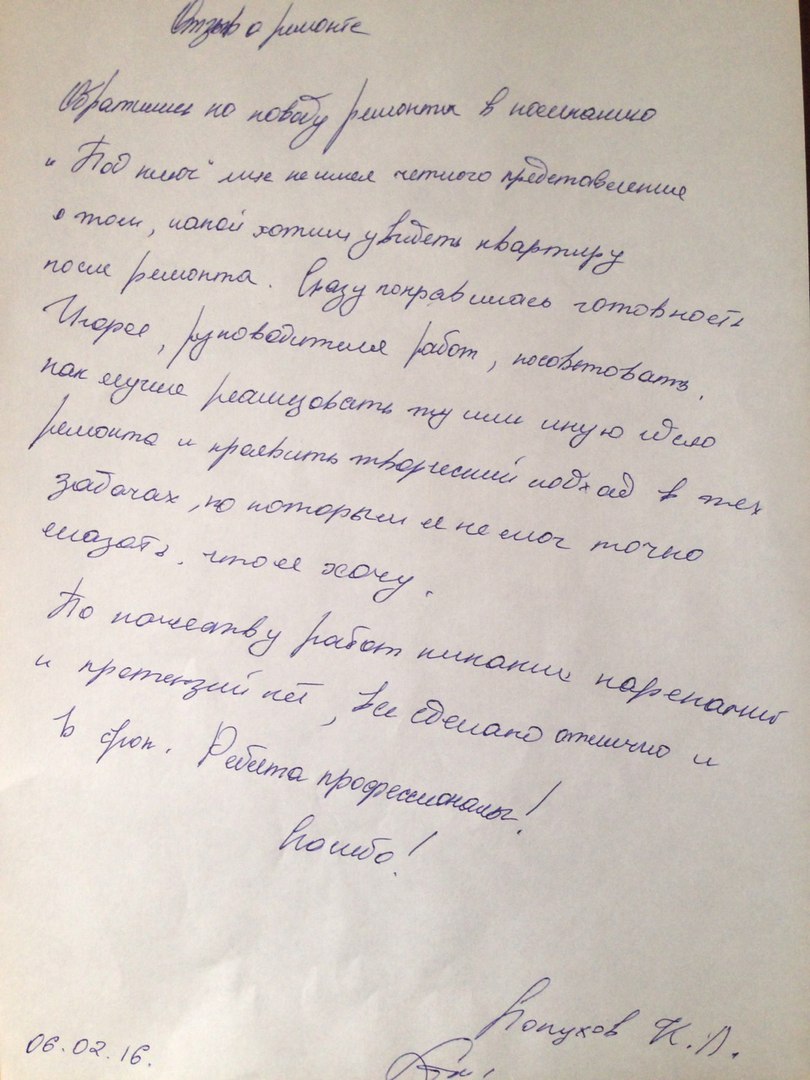 Отзыв о ремонте
Обратились по поводу ремонта в компанию
"Под ключ" мы не имея четкого представления
о том, какой хотим увидеть квартиру
после ремонта. Сразу понравилась готовность
Игоря, руководителя работ, посоветовать,
как лучше реализовать ту или иную идею
ремонта и проявить творческий подход в тех
задачах, по которым я не мог точно
сказать, что я хочу.
По качеству работ никаких нареканий
и претензий нет, все сделано отлично и
в срок. Ребята профессионалы!
Спасибо!
К.
06.02.16.